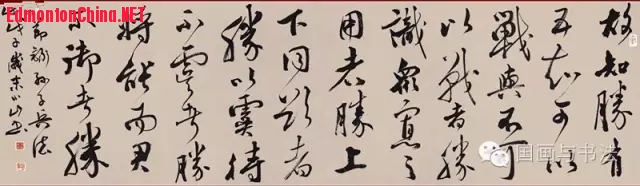 故知勝有
五知可以
戰與不可
以戰者勝
識衆寡之
用者勝上
下同欲者
勝以虞待
不虞者勝
將能而君
不御者勝
節錄孫子兵法
戊子歲末
www.EdmontonChina.NET
国画与书法